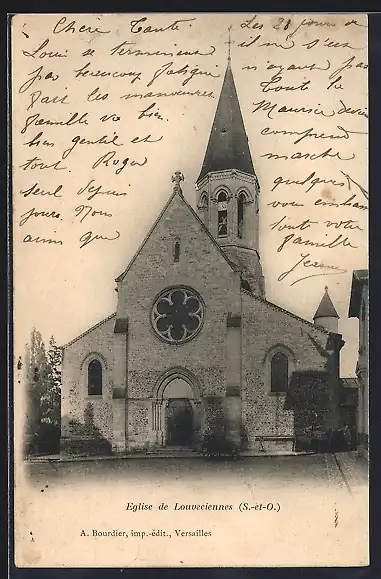 Chère Tante
Les 28 jours de
Louis se terminent
il ne s'en
pas beaucoup fatigué
n'ayant pas
fait les manœuvres
Tout la
famille va bien.
Maurice devien
bien gentil et
comprend
tout Roger
marche
seul depuis
quelques
jours. Nous
vous embrassons
ainsi que
tout votre
famille
Jeanne
Eglise de Louveciennes (S.-et-O.)
A. Bourdier, imp.-édit., Versailles